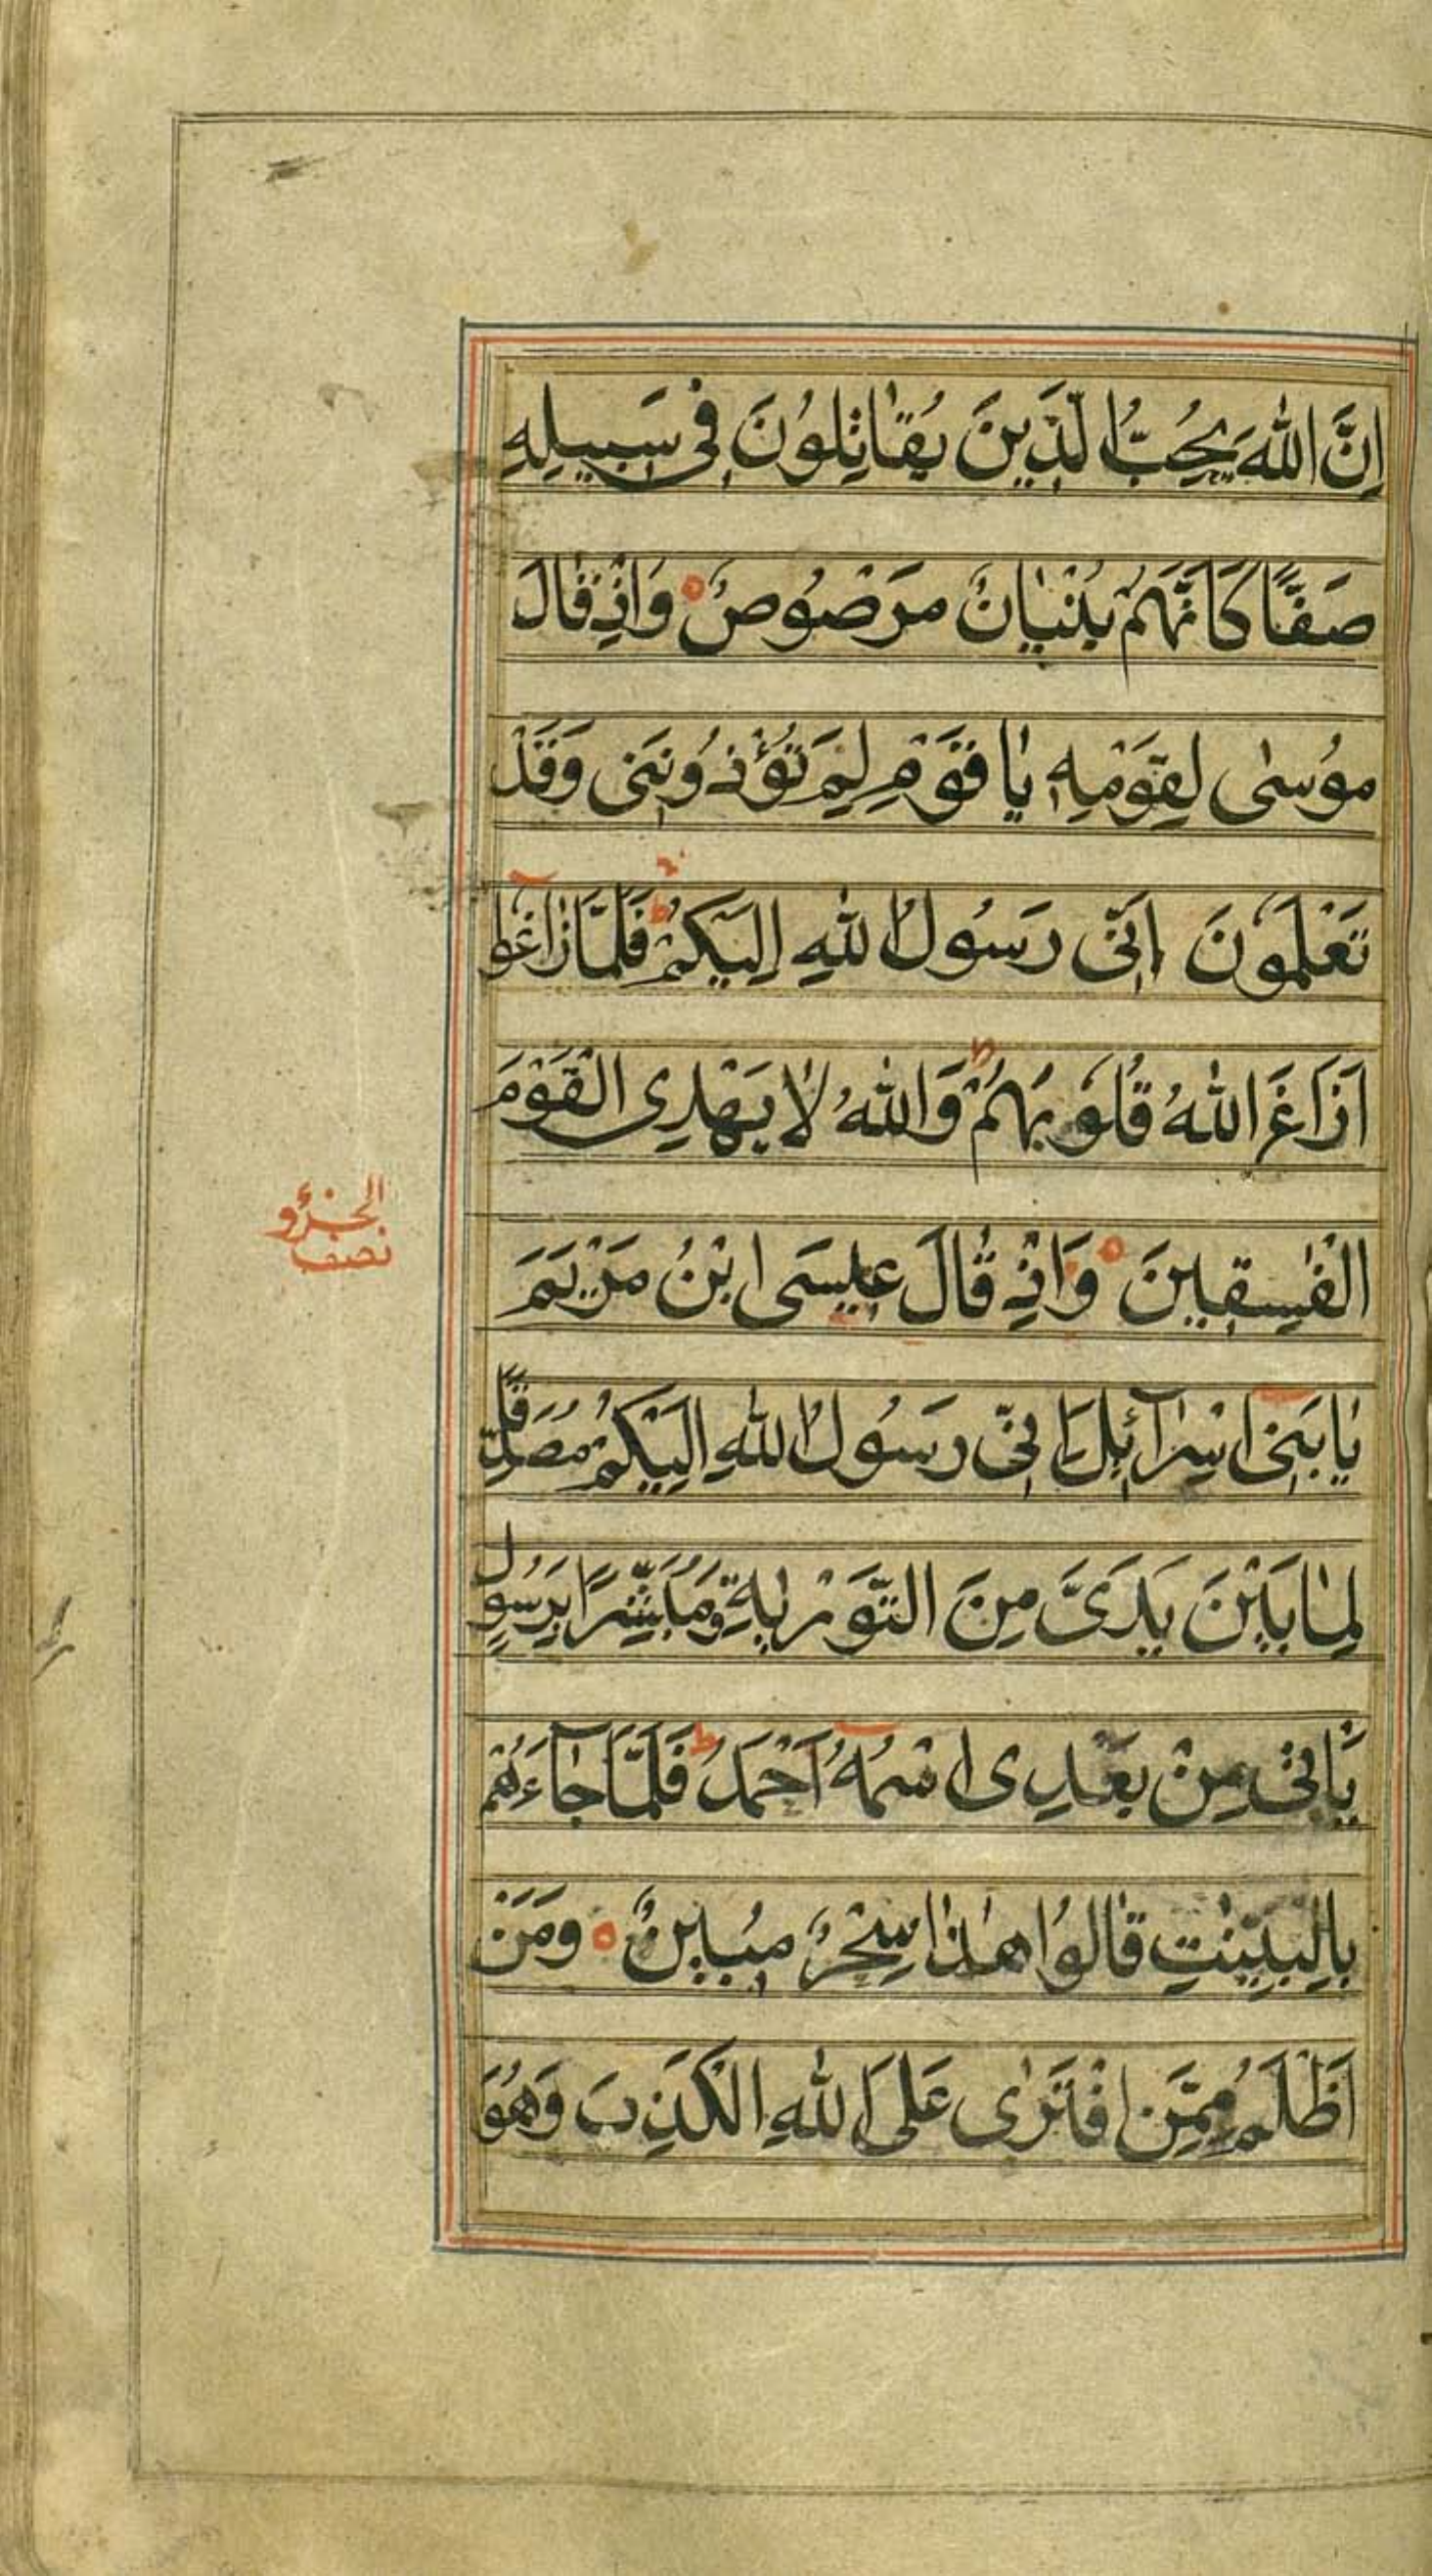 اِنَّ اللّٰهَ يُحِبُّ الَّذِينَ يُقَاتِلُونَ فِى سَبِيلِهِ
صَفًّا كَاَنَّهُمْ بُنْيَانٌ مَرْصُوصٌ وَاِذْ قَالَ
مُوسٰى لِقَوْمِهِ يَا قَوْمِ لِمَ تُؤْذُونَنِى وَقَدْ
تَعْلَمُونَ اَنِّى رَسُولُ اللّٰهِ اِلَيْكُمْ ط فَلَمَّا زَاغُوا
اَزَاغَ اللّٰهُ قُلُوبَهُمْ ط وَاللّٰهُ لَا يَهْدِى الْقَوْمَ
الْفٰسِقِينَ وَاِذْ قَالَ عِيسَى ابْنُ مَرْيَمَ
الجزؤ
نصف
يَا بَنِى اِسْرَآئِلَ اِنِّى رَسُولُ اللّٰهِ اِلَيْكُمْ مُصَدِّقًا
لِمَا بَيْنَ يَدَىَّ مِنَ التَّوْرٰيةِ وَمُبَشِّرًا بِرَسُولٍ
يَأْتِى مِنْ بَعْدِى اسْمُهُ اَحْمَدُ ط فَلَمَّا جَآءَهُمْ
بِالْبَيِّنٰتِ قَالُوا هٰذَا سِحْرٌ مُبِينٌ وَمَنْ
اَظْلَمُ مِمَّنِ افْتَرٰى عَلَى اللّٰهِ الْكَذِبَ وَهُوَ